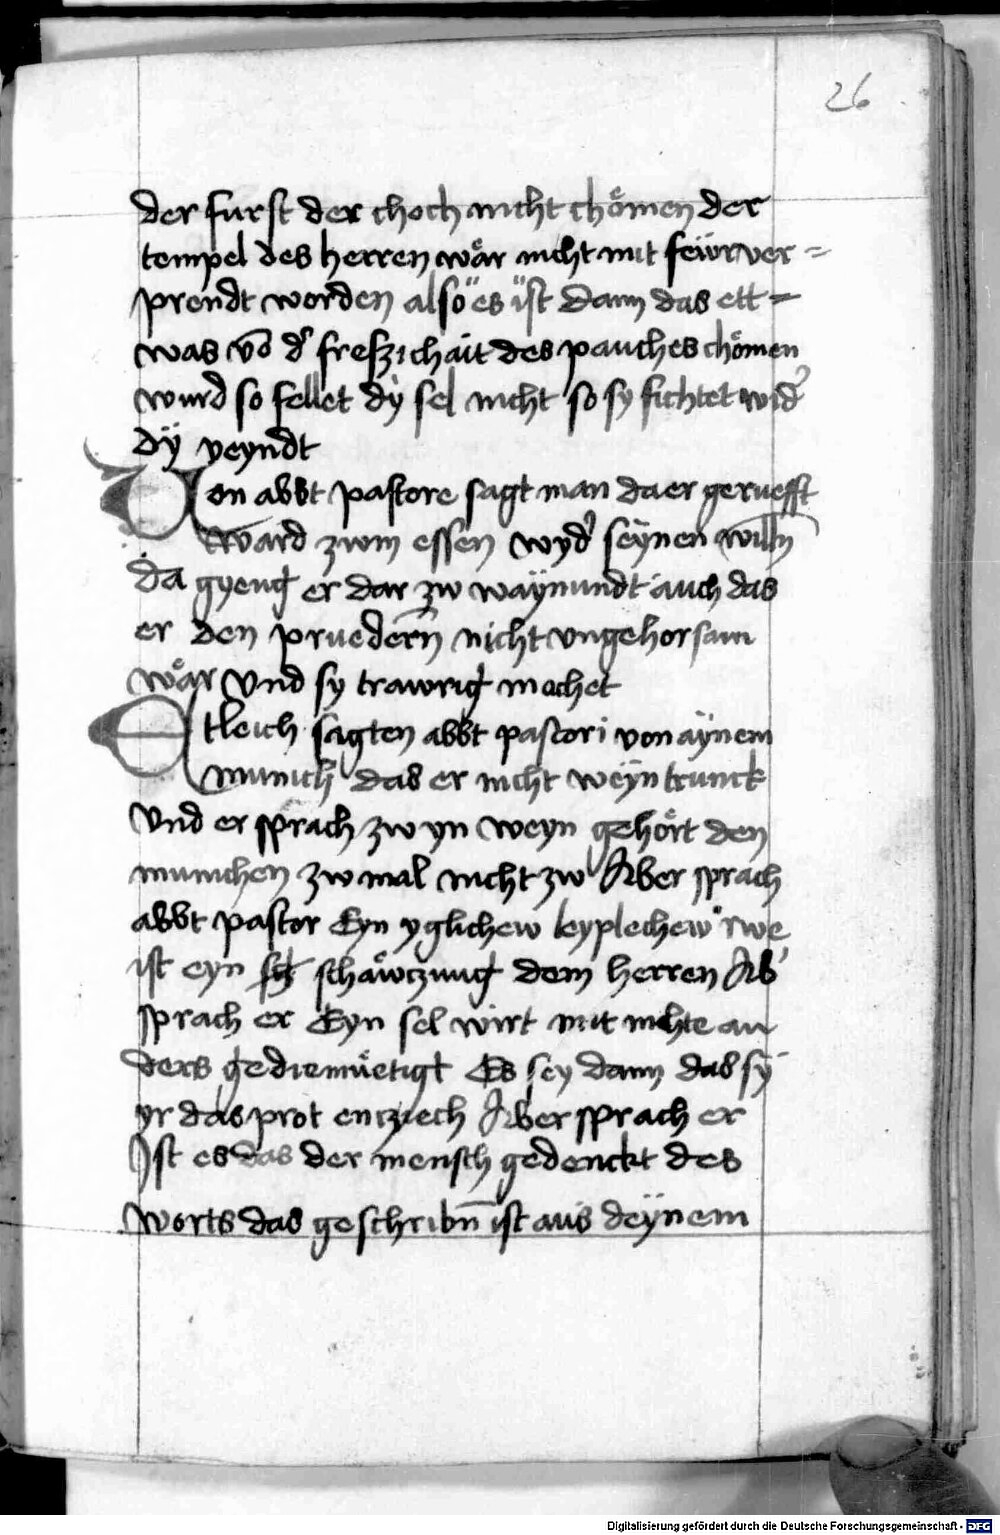 26
der furst der choch nicht chömen der
tempel des herren wär nicht mit feüvr ver=
prendt worden also es ist dann das ett=
was vō d' freszichait des pauches chömen
wurd so fellet dÿ sel nicht so sy fichtet wid'
dÿ veyndt
Von abbt pastore sagt man da er geruefft
ward zwm essen wyd' seÿnen willn̄
da gyeng er dar zw waÿnundt auch das
er den pruedern̄ nicht vngehorsam
wär Vnd sy trawrig machet
Etleich sagten abbt pastori von aÿnem
munich das er nicht weÿn trunck
Vnd er sprach zw yn weyn gehört den
munichen zw mal nicht zw Aber sprach
abbt pastor Eyn yglichew leyplechew rwe
ist eyn schäwczung dem herren Ab'
sprach er Eyn sel wirt mit nichte an
ders gediemüetigt Es sey dann das sÿ
yr das prot entziech Aber sprach er
Ist es das der mensch gedenckt des
worts das geschribn̄ ist aus deÿnem
Digitalisierung gefördert durch die Deutsche Forschungsgemeinschaft - DFG